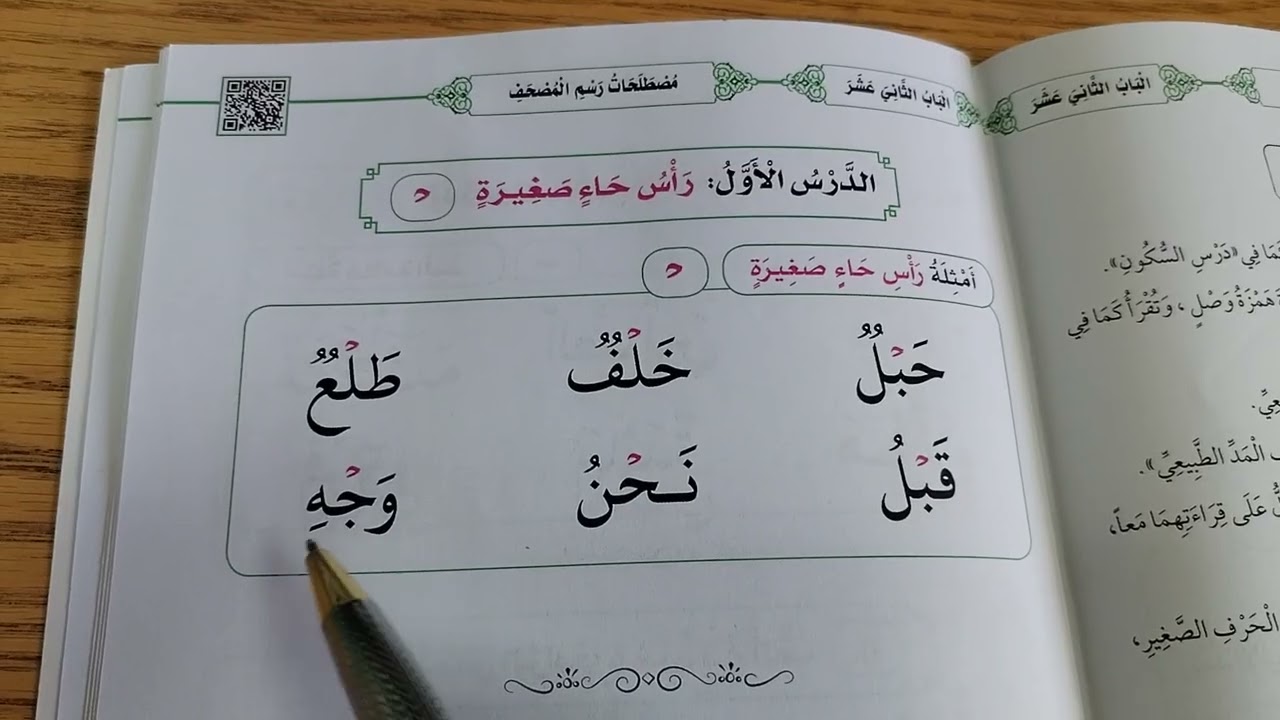 الْبَابُ الثَّانِيَ عَشَرَ
مُصْطَلَحَاتُ رَسْمِ الْمُصْحَفِ
الدَّرْسُ الْأَوَّلُ: رَأْسُ حَاءٍ صَغِيرَةٍ
أَمْثِلَةُ رَأْسِ حَاءٍ صَغِيرَةٍ
حَبْلٌ خَلْفٌ طَلْعٌ
قَبْلُ نَحْنُ وَجْهِ
الْبَابُ الثَّانِيَ عَشَرَ
كَمَا فِي «دَرْسِ السُّكُونِ».
هَمْزَةُ وَصْلٍ، وَتُقْرَأُ كَمَا فِي
الْمَدِّ الطَّبِيعِيِّ».
عَلَى قِرَاءَتِهِمَا مَعاً،
الْحَرْفِ الصَّغِيرِ،